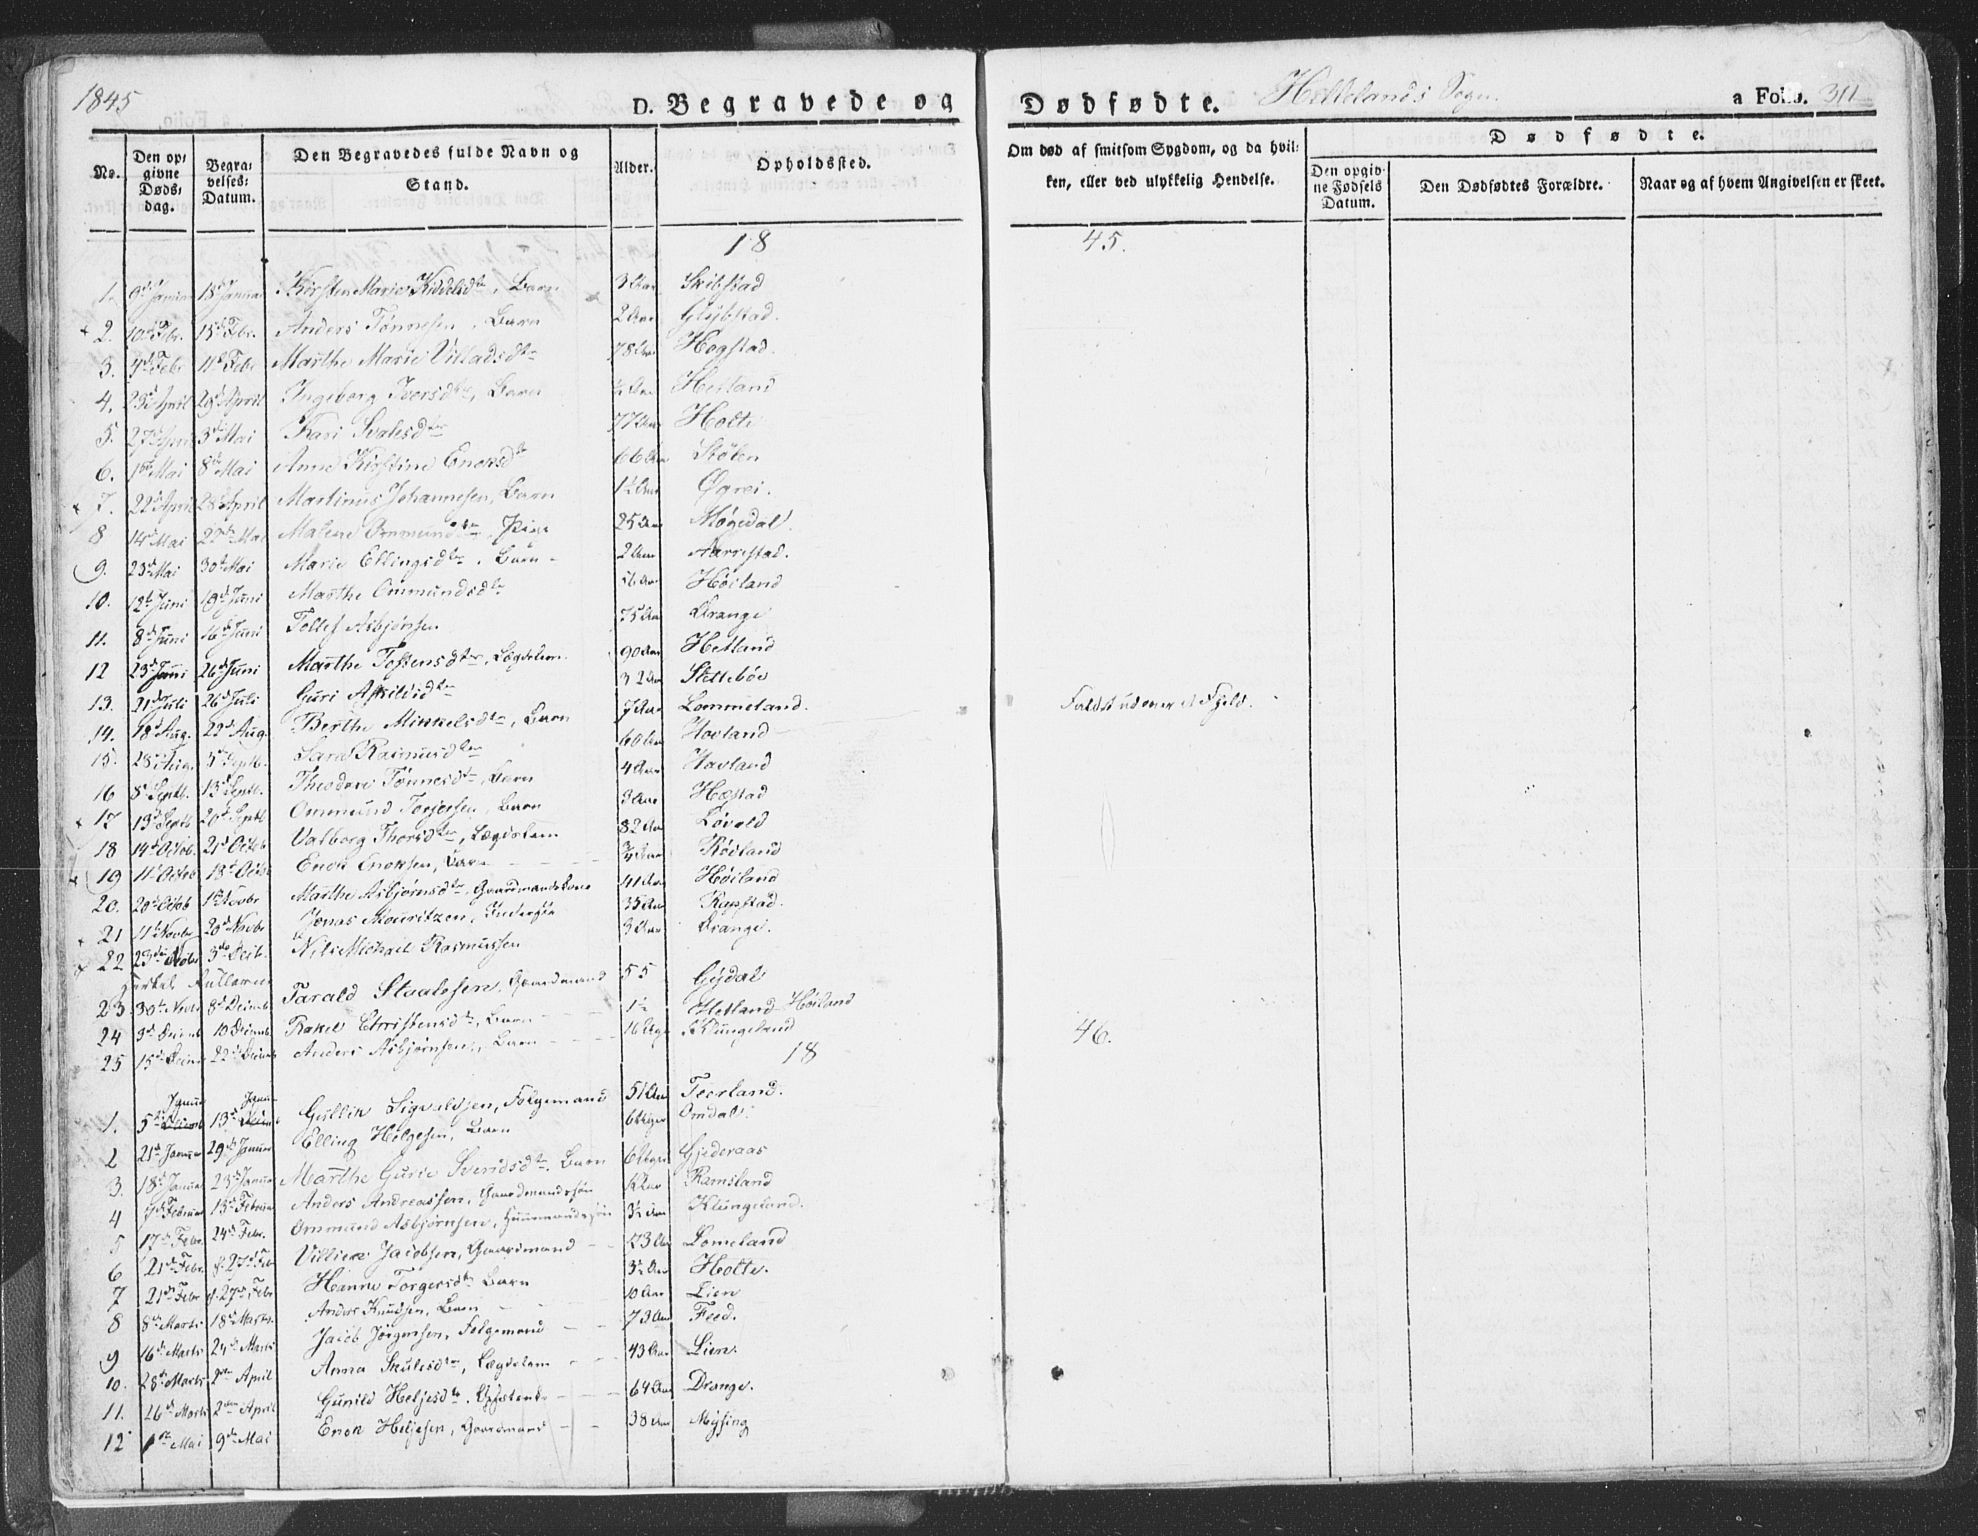 1845
D. Begravede og Dødfødte. Hellelands Sogn. a Folio. 311
No. Den opgivne Dødsdag. Begravelses-Datum. Den Begravedes fulde Navn og Stand. Alder. Opholdssted. Om død af smitsom Sygdom, og da hvilken, eller ved ulykkelig Hendelse. Dødfødte. Den opgivne Fødsels Datum. Den Dødfødtes Forældre. Naar og af hvem Angivelsen er skeet.
18 45.
1. 9d Januar 18d Januar Kirsten Marie Kiddelsdtr, Barn 3 Aar Skibstad
2. 10d Febr. 15d Febr. Anders Tønnesen, Barn 2 Aar
3. 4d Febr 11d Febr Marthe Marie Villadsdtr 78 Aar Hogstad.
4. 23d April 29d April Ingeborg Iversdtr, Barn ½ Aar Hetland
5. 27d April 3d Mai Kari Svalesdtr 77 Aar Holte
6. 1ste Mai 8d Mai Anne Kirstine Enoksdtr 66 Aar Stølen
7. 22d April 28d April Martinus Johannesen, Barn 1½ Aar Øgrei.
8 14d Mai 22d Mai Malene Ommundsdtr, Pige 25 Aar Møgedal.
9. 23d Mai 30te Mai Marie Ellingsdtr, Barn 2 Aar Aarrestad.
10. 12te Juni 18d Juni Marthe Ommundsdtr Aar Høiland
11. 8d Juni 16d Juni Tollef Asbjørnsen 75 Aar Drange
12 23d Juni 26d Juni Marthe Tostensdtr, Lægdslem. 90 Aar Hetland
13. 21d Juli 26d Juli Guri Aslisdtr 32 Aar Slettebøe
14. 18d Aug. 22d Aug. Berthe Mikkelsdtr, Barn 7 Aar Lommeland. Faldt ud over et Fjeld.
15. 28d Aug. 5te Septb. Sara Rasmusdtr 60 Aar Hovland
16 8d Septb. 13d Septb. Theodore Tønnesdtr, Barn 4 Aar Havland
17 13d Septb 20d Septb Ommund Torjersen, Barn 3 Aar Hæstad
18 14d Octob. 21d Octob Valborg Thorsdtr, Lægdslem 82 Aar Løvold
19 11te Octob 18d Octob Enok Enoksen, Barn ¾ Aar Rødland
20. 20d Octob 1ste Novbr Marthe Asbjørnsdtr, Gaardmandskone 41 Aar Høiland
21 11te Novbr 20d Novbr Jonas Mouritzen, Inderst 35 Aar
22 23de Novbr 3die Decb. Nils Michael Rasmussen 3 Aar Drange.
23 30te Novbr 8d Decemb Tarald Staalesen, Gaardmand 55 Gysdal
24 3d Decemb 10 Decemb. Rakel Christensdtr, Barn 1½ Hetland Høiland
25 15d Decemb 22d Decemb Anders Asbjørnsen, Barn 16 Uger Klungeland
18 46.
1. 5te Januar 13d Januar Gullik Sigvaldsen, Følgemand 51 Aar Teorland.
2 21d Januar 29d Januar Elling Helgesen, Barn 6 Uger Omdal.
3. 18d Januar 23d Januar Marthe Gurie Svendsdtr. Barn 6 Uger Gjederaas
4 7d Februar 13d Februar Anders Andreassen, Gaardmandssøn Aar Ramsland
5 17d Febr. 24d Febr. Ommund Asbjørnsen, Huusmandssøn 3½ Aar Klungeland.
6 21d Febr. 27d Feb Villiem Jacobsen, Gaardmand 73 Aar Lomeland
7 21d Febr 27d Febr Hanne Torgersdtr Barn 3½ Aar Holte.
8 8d Marts 18d Marts. Anders Knudsen, Barn 10 Aar Lien
9 16d Marts 24d Marts Jacob Jørgensen, Følgemand 73 Aar Feed.
10. 28d Marts 2den April Anna Skulesdtr, Lægdslem 43 Aar Lien.
11. 26d Marts 2den April Gunild Heljesdtr. 64 Aar Drange.
12 1ste Mai 9de Mai Enok Heljesen, Gaardmand 38 Aar Mysing